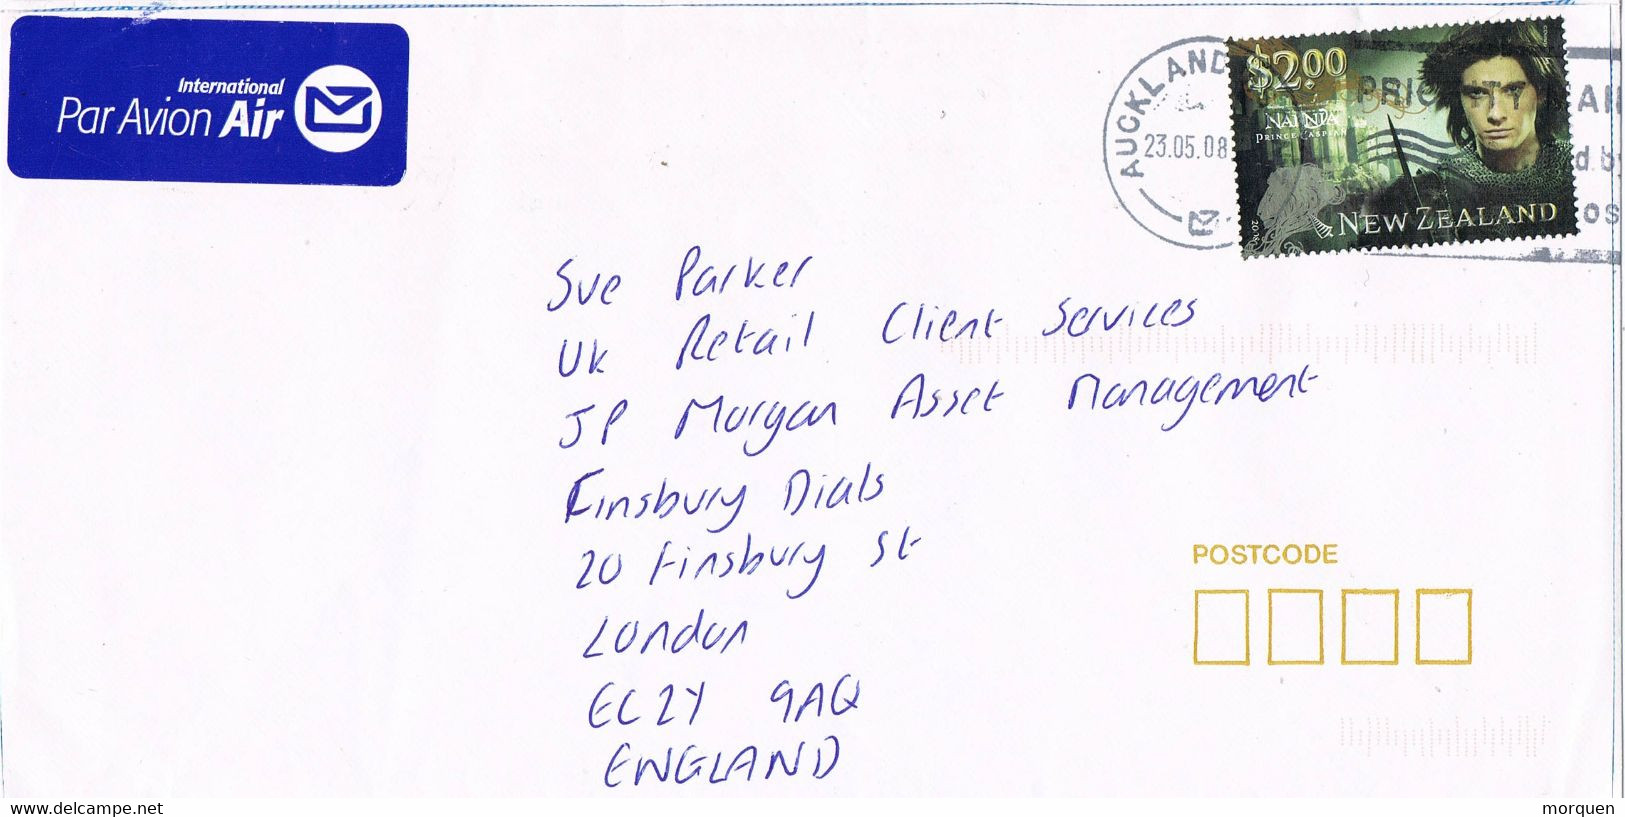 International
Par Avion Air
AUCKLAND
23.05.08
$2.00
NARNIA
PRINCE CASPIAN
2008
NEW ZEALAND
Sue Parker
UK Retail Client Services
JP Morgan Asset Management
Finsbury Dials
20 Finsbury St
London
EC2Y 9AQ
ENGLAND
POSTCODE
www.delcampe.net
morquen